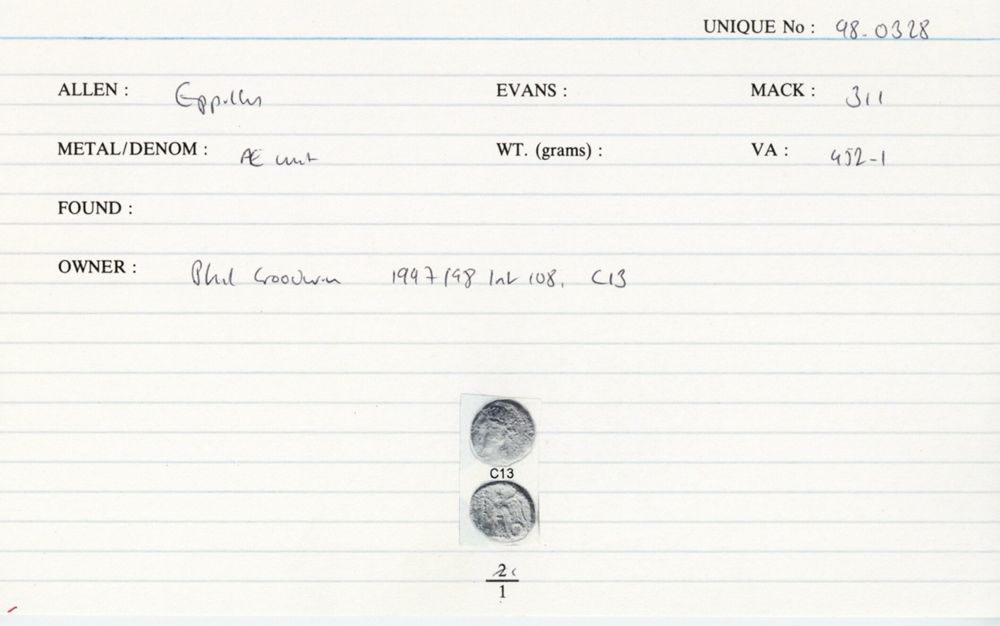 UNIQUE No : 98.0328
ALLEN : Eppillus EVANS : MACK : 311
METAL/DENOM : Æ unit WT. (grams) : VA : 452-1
FOUND :
OWNER : Phil Goodwin 1997/98 Int 108, C13
C13
2
1